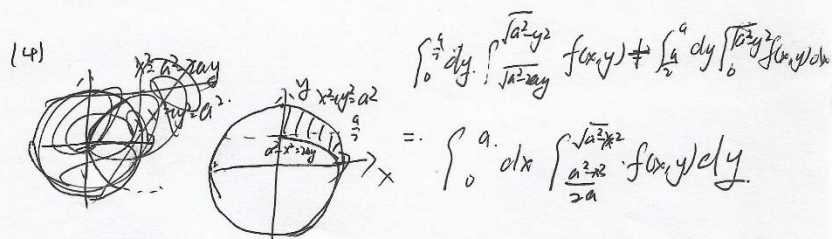 (4)
x²=a²-2ay
x²+y²=a².
y x²+y²=a²
a/2
a²-x²=2ay
x
∫₀^{a/2} dy ∫_{√(a²-2ay)}^{√(a²-y²)} f(x,y) + ∫_{a/2}^{a} dy ∫₀^{√(a²-y²)} f(x,y) dx
= ∫₀^{a} dx ∫_{(a²-x²)/2a}^{√(a²-x²)} f(x,y) dy